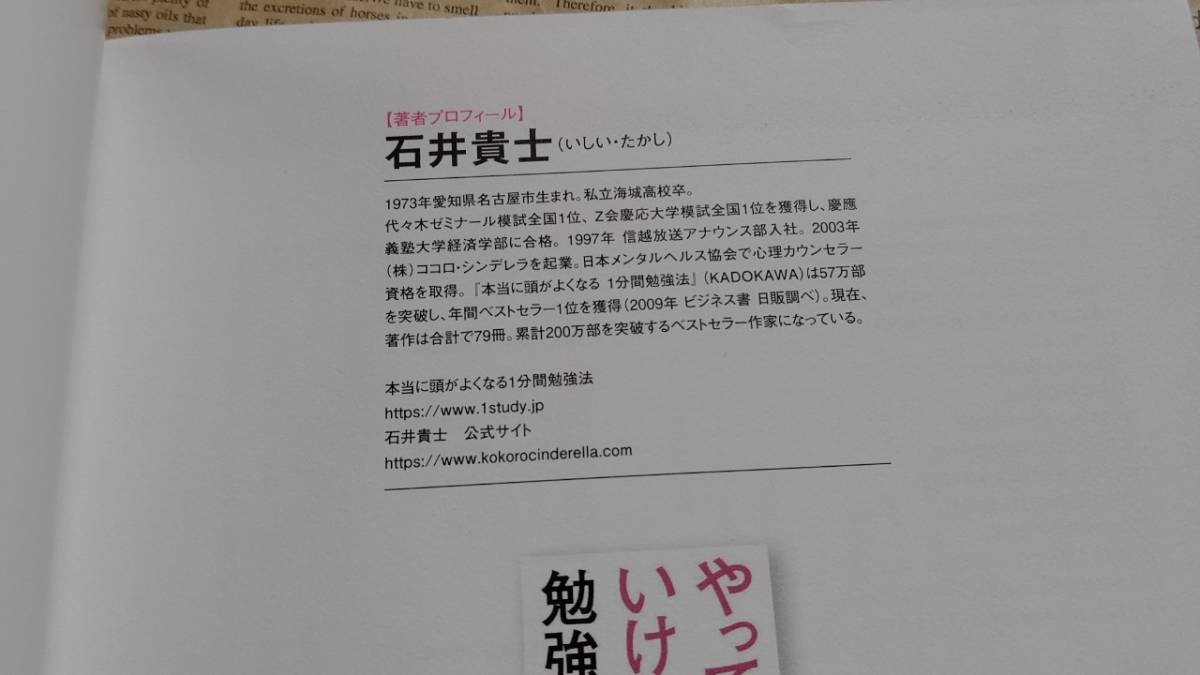 of nasty oils that
problems
the excretions of horses in
have to smell
them. Therefore, it
【著者プロフィール】
石井貴士（いしい・たかし）
1973年愛知県名古屋市生まれ。私立海城高校卒。
代々木ゼミナール模試全国1位、Z会慶応大学模試全国1位を獲得し、慶應
義塾大学経済学部に合格。1997年 信越放送アナウンス部入社。2003年
（株）ココロ・シンデレラを起業。日本メンタルヘルス協会で心理カウンセラー
資格を取得。『本当に頭がよくなる 1分間勉強法』（KADOKAWA）は57万部
を突破し、年間ベストセラー1位を獲得（2009年 ビジネス書 日販調べ）。現在、
著作は合計で79冊。累計200万部を突破するベストセラー作家になっている。
本当に頭がよくなる1分間勉強法
https://www.1study.jp
石井貴士　公式サイト
https://www.kokorocinderella.com
やって
いけ
勉強